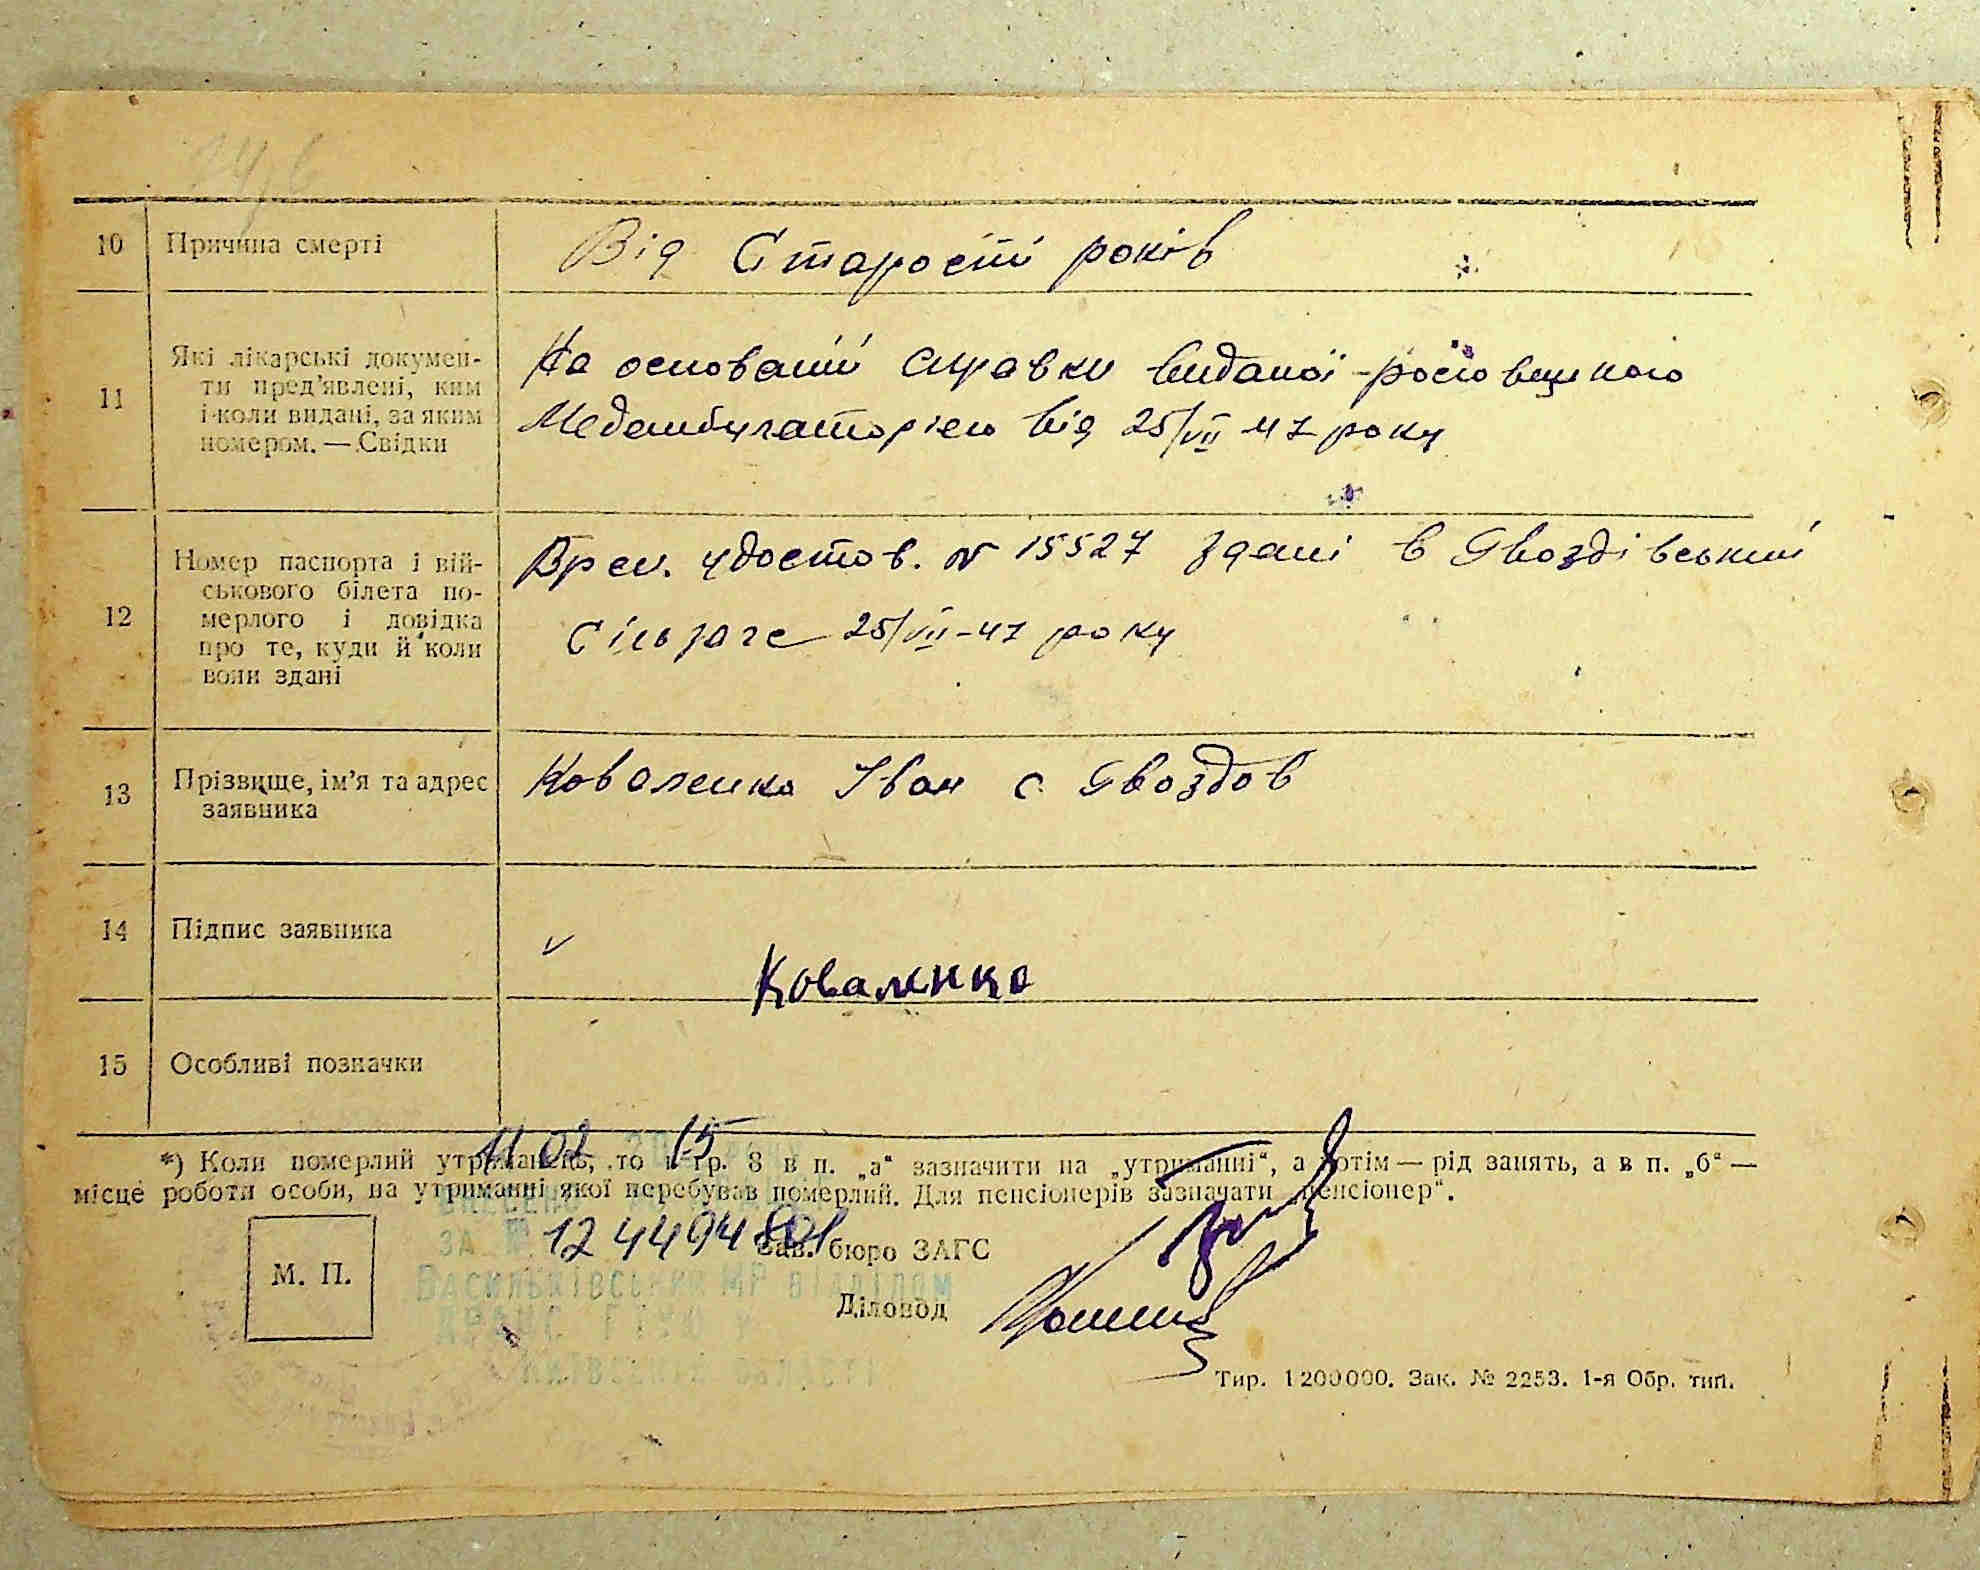 10 Причина смерті Від Старости років
11 Які лікарські докумен-
ти пред'явлені, ким
і коли видані, за яким
номером. — Свідки
На основании справки виданої
Медамбулаторією від 25/VII 47 року
12 Номер паспорта і вій-
ськового білета по-
мерлого і довідка
про те, куди й коли
вони здані
Врем. удостов. № 15527 здані в Гвоздівський
Сільраде 25/VII-47 року
13 Прізвище, ім'я та адрес
заявника
Коваленко Іван с. Гвоздов
14 Підпис заявника
Коваленко
15 Особливі позначки
11 02 15
*) Коли померлий утриманець, то в гр. 8 в п. „а“ зазначити на „утриманні“, а потім — рід занять, а в п. „б“ —
місце роботи особи, на утриманні якої перебував померлий. Для пенсіонерів зазначати „пенсіонер“.
ЗА № 12449480
Зав. бюро ЗАГС
М. П.
Васильківським МР відділом
Діловод
Київській області
Тир. 1200000. Зак. № 2253. 1-я Обр. тип.